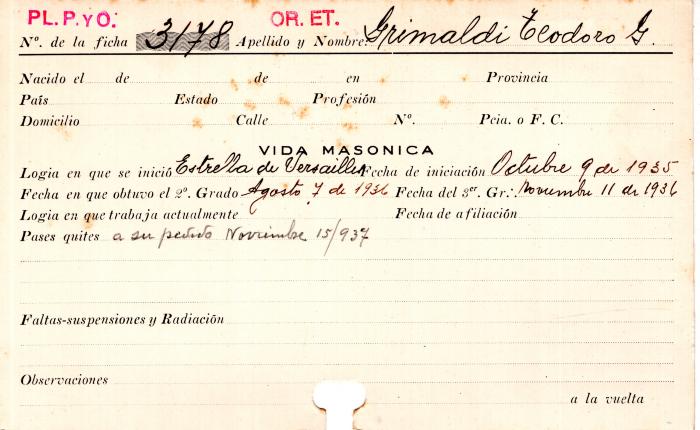 PL. P. y O. OR. ET.
Nº. de la ficha 3178 Apellido y Nombre: Grimaldi Teodoro G.
Nacido el de de en Provincia
País Estado Profesión
Domicilio Calle Nº. Pcia. o F. C.
VIDA MASONICA
Logia en que se inició Estrella de Versailles Fecha de iniciación Octubre 9 de 1935
Fecha en que obtuvo el 2º. Grado Agosto 7 de 1936 Fecha del 3er. Gr∴ Noviembre 11 de 1936
Logia en que trabaja actualmente Fecha de afiliación
Pases quites a su pedido Noviembre 15/937
Faltas-suspensiones y Radiación
Observaciones
a la vuelta